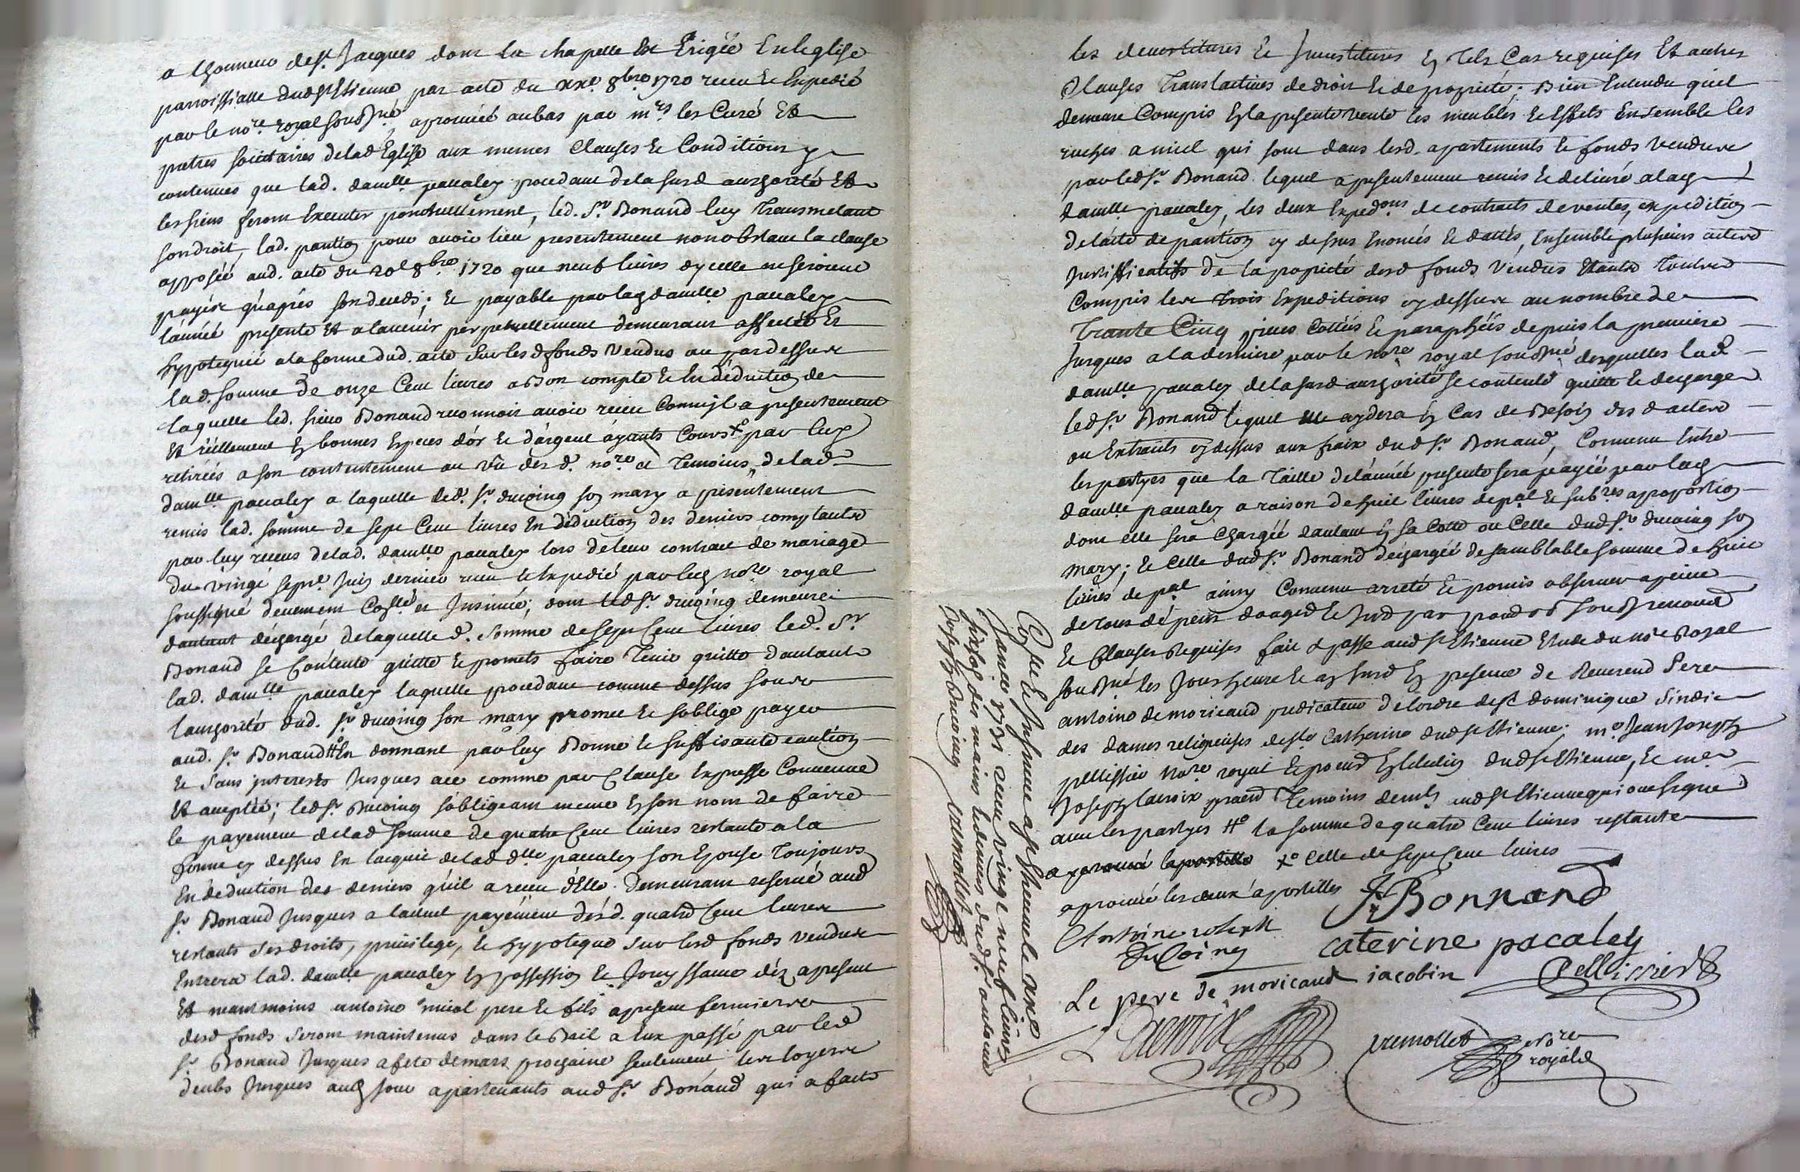 a lhonneur de st. Jacques dont la chapelle Est Erigée En leglise
parroissialle dudst Etienne par acte du xxe. 8bre. 1720 receu Et Expedié
par le nore. royal souss.né, aprouvée au bas par mrs les Curé Et
pretres societaires de lad Eglise aux memes Clauses Et Conditions y
contenues que lad. damlle. pacaley procedant de la susd authorité Et
les siens feront Executer ponctuellement, led. Sr Bonand luy Transmetant
son droit, lad. pantion pour avoir lieu presentement nonobstant la clause
apposée aud. acte du 20e 8bre 1720 que neuf livres dycelle ne seroient
payées qu'après son deceds; Et payable par lad damlle pacaley
lannée presente Et a lavenir perpetuellement demeurant affectés Et
hypotequée a la forme dud. acte sur lesd fonds vendus au par dessus
lad. somme de onze Cent livres a Bon compte Et En deduction de
laquelle led. sieur Bonand reconnoit avoir receu Comme il a presentement
Et réellement En bonnes Especes d'or Et d'argent ayants Cours xo par luy
retirées a son contentement au vû desd. nore. et Temoins, de lad.
damlle pacaley a laquelle led. sr. ducoing son mary a presentement
remis lad. somme de sept Cent livres En deduction des deniers comptants
par luy receus de lad. damlle pacaley lors de leur contract de mariage
du vingt sept Juin dernier receu Et Expedié par led nore royal
soussigné deuement Collé et Insinué; dont led sr. ducoing demeure
dautant dechargé de laquelle d. somme de sept Cent livres led. Sr
Bonand se Contente quitte Et promets faire Tenir quitte dautant
lad. damlle pacaley laquelle procedant comme dessus sous
lauthorité dud. sr. ducoing son mary promet Et soblige payer
aud. sr. Bonand Ho En donnant par luy Bonne Et suffisante caution
Et sans interests Jusques a ce comme par Clause Expresse Convenue
Et aceptée; led sr. Ducoing sobligeant meme En son nom de faire
le payement de lad somme de quatre Cent livres restante a la
forme cy dessus En lacquit de lad dlle pacaley son Epouse Toujours
En deduction des deniers qu'il a receu d'Elle. demeurant reservé aud
sr. Bonand Jusques a lactuel payement desd. quatre Cent livres
restants ses droits, privilege, Et hypoteque sur lesd fonds vendus
Entrera lad. damlle pacaley En possession Et Jouyssance dez apresent
Et neantmoins antoine miol pere Et fils apresent fermiers
desd fonds seront maintenus dans le Bail a Eux passé par led
sr. Bonand Jusques a fete de mars prochaine seulement les loyers
deubs Jusques aud jour apartenants aud sr. Bonand qui a faite
les devestitures Et Investitures En tels Cas requises Et autres
Clauses Translatives de droit Et de proprieté; Bien Entendu quil
demeure Compris En la presente vente les meubles Et Effets Ensemble les
ruches a miel qui sont dans lesd. apartements Et fonds vendus
par led sr. Bonand lequel a presentement remis Et delivré a lad
damlle pacaley, les deux Expedons de contracts de ventes, expedition
de lacte de pantion cy dessus Enoncés Et dattés, Ensemble plusieurs actes
Justifficatifs de la proprieté desd fonds vendus Et autres Toutes
Compris les Trois Expeditions cy dessus au nombre de
Trante Cinq pieces Cottées Et paraphées depuis la premiere
Jusques a la derniere par le nore royal souss.né desquelles lad.
damlle pacaley de la susd authorité se contente quitte Et decharge
led sr. Bonand lequel aydera En Cas de Besoin des dactes
ou Extraits cy dessus aux fraix dud sr. Bonand, Convenu Entre
les partyes que la Taille de lannée presente sera payée par lad
damlle pacaley a raison de huit livres de pal Et subres a proportion
dont elle sera Chargée dautant En sa Cotte ou Celle dud sr. ducoing son
mary; Et Celle dud sr. Bonand dechargée de samblable somme de huit
livres de pal ainsy Convenu arreté Et promis observer a peine
de tous dépens domages Et
Et Clauses Requises fait Et passe aud st Etienne Etude du nore Royal
souss.né les Jour heure Et an susd En presence de Reverend Pere
antoine de moricaud predicateur de l'ordre de st dominique Sindic
des dames religieuses de ste Catherine dudst Etienne, me. Jean Joseph
pellissier nore royal Et procur En lElection dudst Etienne, Et mer
Joseph lacroix prend Temoins demts aud st Etienne qui ont signé
avec les partyes Ho la somme de quatre Cent livres restante
xo Celle de sept Cent livres
aprouvé les deux apostilles
J Bonnand
Antoine Joseph
DuCoing
Caterine pacaley
Le pere de moricaud iacobin
Pellissier
Lacroix
vremollet nore
royal
Collé Et Insinué a St Etienne le xxxe
Janvier 1731 receu vingt neuf livres